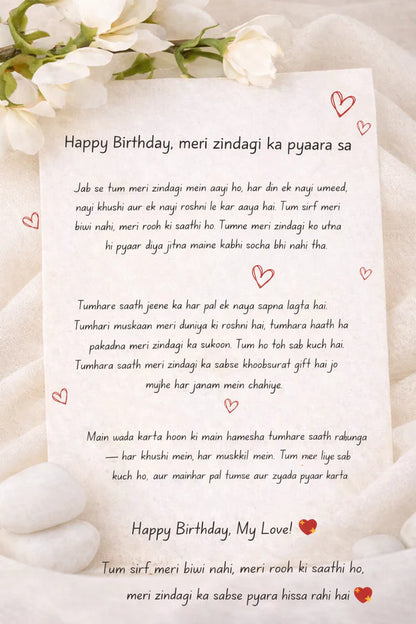 Happy Birthday, meri zindagi ka pyaara sa
Jab se tum meri zindagi mein aayi ho, har din ek nayi umeed,
nayi khushi aur ek nayi roshni le kar aaya hai. Tum sirf meri
biwi nahi, meri rooh ki saathi ho. Tumne meri zindagi ko utna
hi pyaar diya jitna maine kabhi socha bhi nahi tha.
Tumhare saath jeene ka har pal ek naya sapna lagta hai.
Tumhari muskaan meri duniya ki roshni hai, tumhara haath ha
pakadna meri zindagi ka sukoon. Tum ho toh sab kuch hai.
Tumhara saath meri zindagi ka sabse khoobsurat gift hai jo
mujhe har janam mein chahiye.
Main wada karta hoon ki main hamesha tumhare saath rahunga
— har khushi mein, har muskkil mein. Tum mer liye sab
kuch ho, aur mainhar pal tumse aur zyada pyaar karta
Happy Birthday, My Love! 💖
Tum sirf meri biwi nahi, meri rooh ki saathi ho,
meri zindagi ka sabse pyara hissa rahi hai 💖